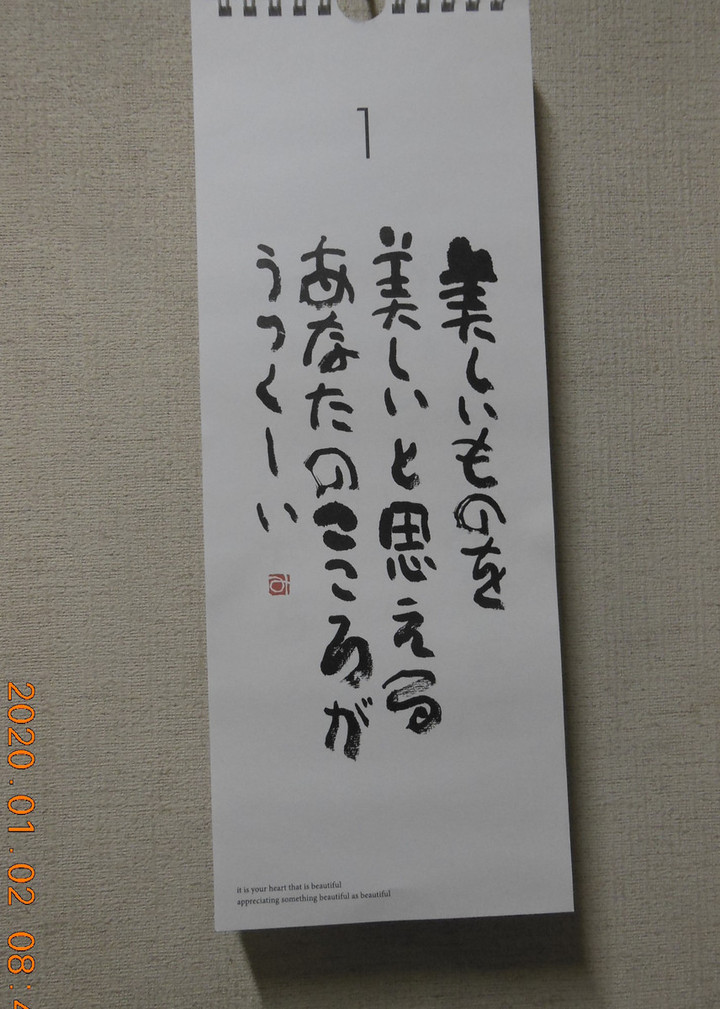 1
美しいものを
美しいと思える
あなたのこころが
うつくしい
it is your heart that is beautiful
appreciating something beautiful as beautiful
2020.01.02 08:4